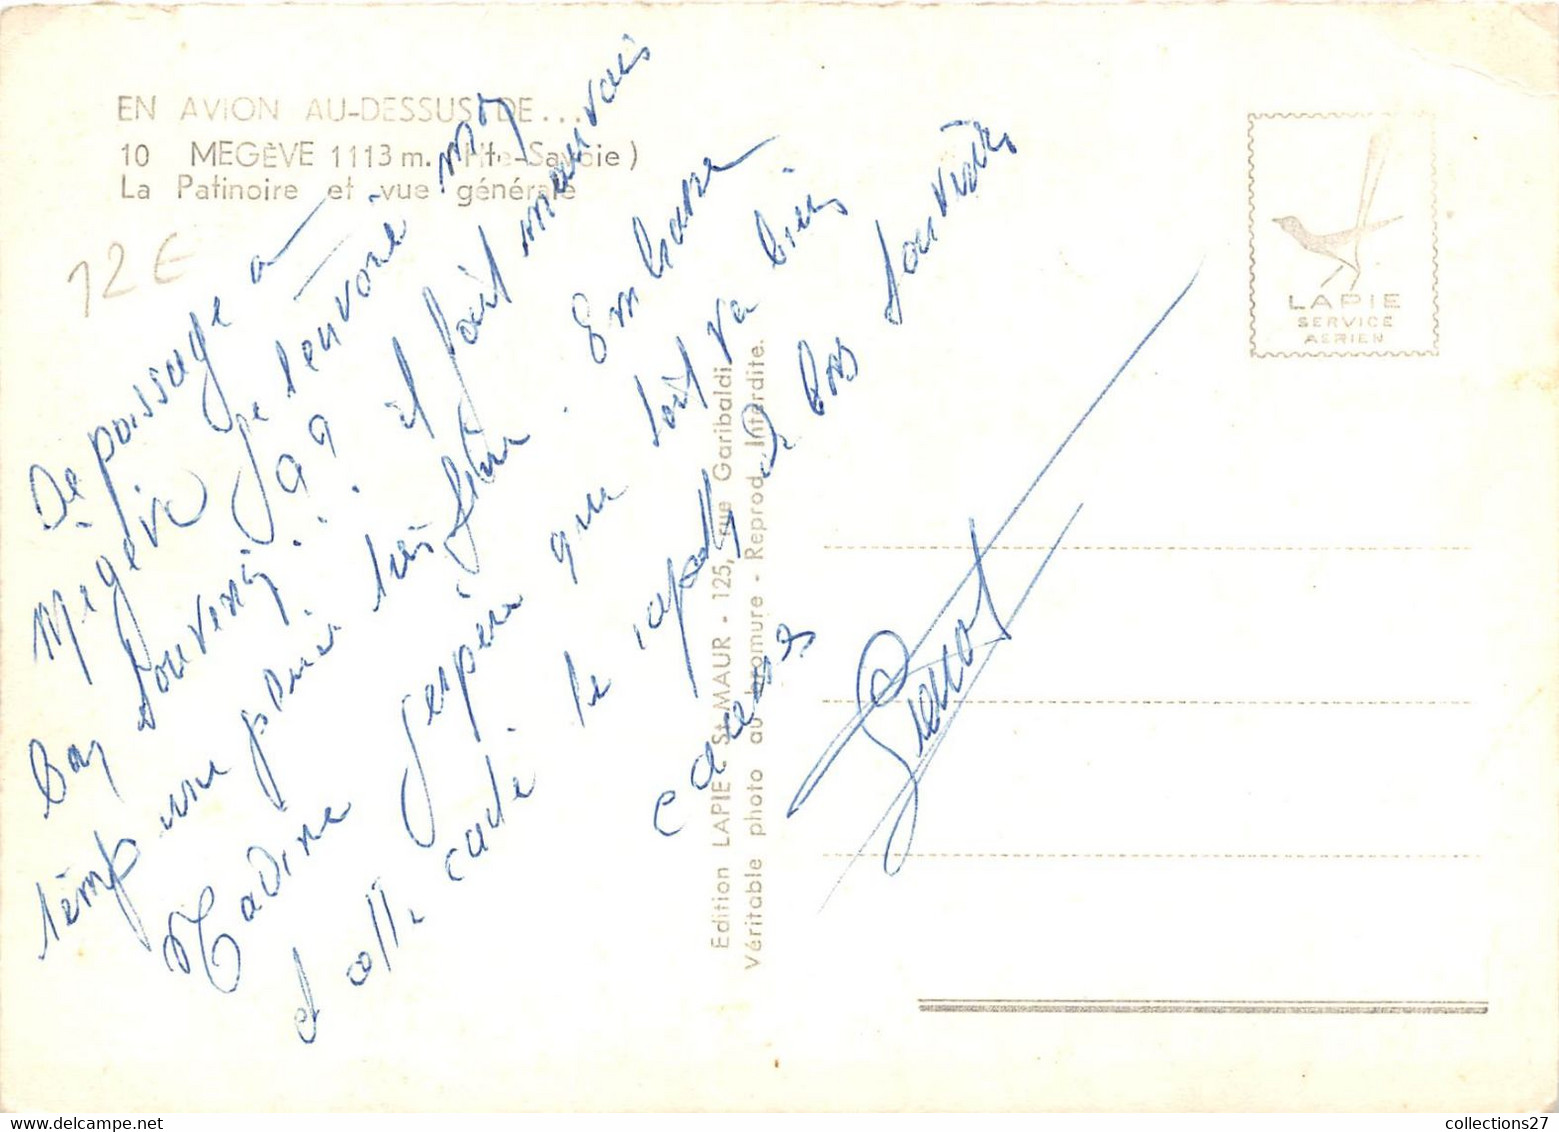 EN AVION AU-DESSUS DE...
10 MEGÈVE 1113 m. (Hte-Savoie)
La Patinoire et vue générale
12 €
De passage a
Megève Je t'envoie mon
bon souvenir. il fait mauvais
temp une pluie très fine. Embrasse
Nadine j'espère que tout va bien
et cette carte te rapelle de bos souvenirs
Pierrot
LAPIE
SERVICE
AERIEN
Edition LAPIE - St-MAUR - 125, rue Garibaldi
Véritable photo au bromure - Reprod. Interdite.
collections27